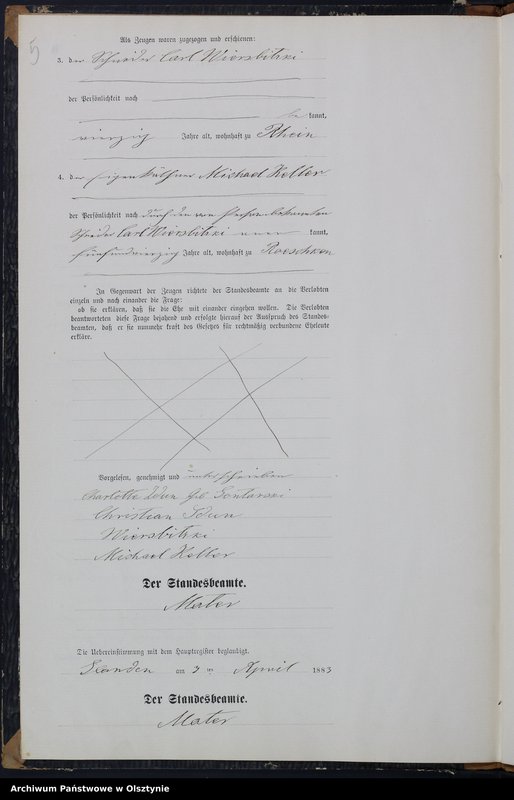 5
Als Zeugen waren zugezogen und erschienen:
3. der Schneider Carl Wiersbitzki
der Persönlichkeit nach
be kannt,
vierzig Jahre alt, wohnhaft zu Rhein
4. der Eigenkäthner Michael Keller
der Persönlichkeit nach durch den von Person bekannten
Schneider Carl Wiersbitzki kannt,
fünfundvierzig Jahre alt, wohnhaft zu
In Gegenwart der Zeugen richtete der Standesbeamte an die Verlobten
einzeln und nach einander die Frage:
ob sie erklären, daß sie die Ehe mit einander eingehen wollen. Die Verlobten
beantworteten diese Frage bejahend und erfolgte hierauf der Ausspruch des Standes-
beamten, daß er sie nunmehr kraft des Gesetzes für rechtmäßig verbundene Eheleute
erkläre.
Vorgelesen, genehmigt und unterschrieben
Charlotte geb.
Christian
Wiersbitzki
Michael Keller
Der Standesbeamte.
Mater
Die Uebereinstimmung mit dem Hauptregister beglaubigt.
am 3 ten April 1883
Der Standesbeamte.
Mater
Archiwum Państwowe w Olsztynie